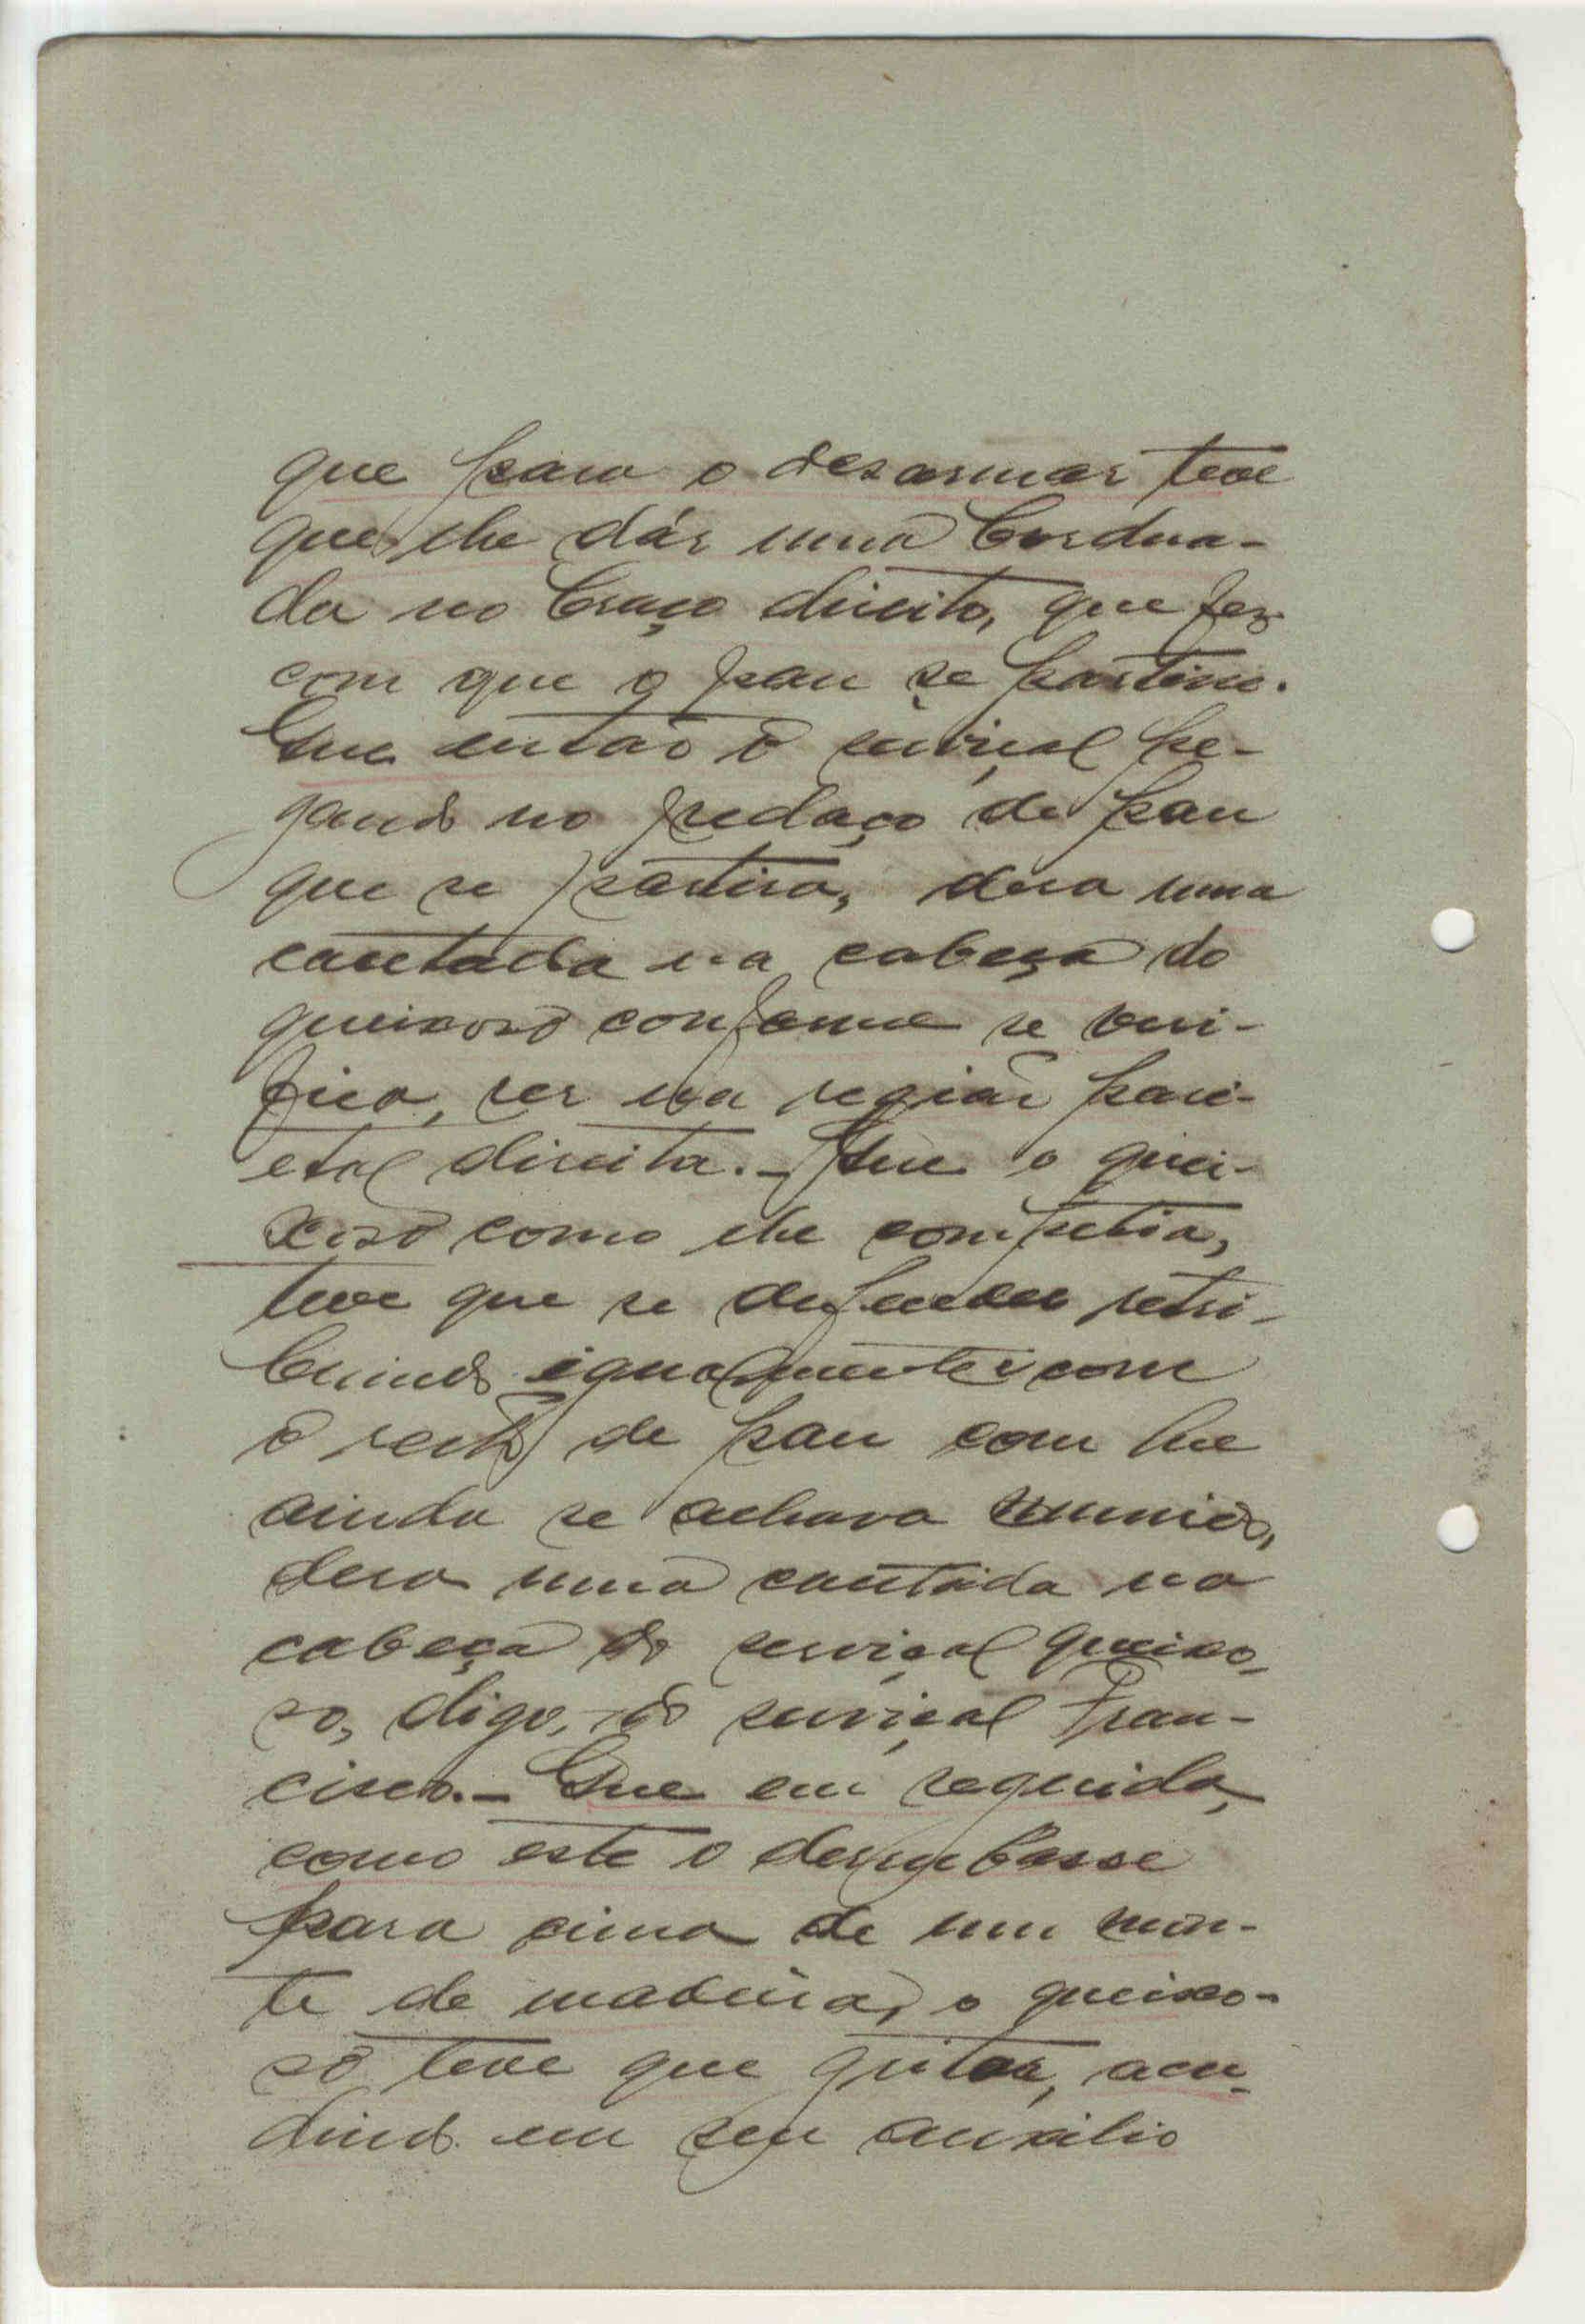 que para o desarmar teve
que lhe dár uma bordua-
da no braço direito, que fez
com que o pau se partisse.
Que então o serviçal pe-
gando no pedaço de pau
que se partira, dera uma
cacetada na cabeça do
queixoso conforme se veri-
fica, ser na região pari-
etal direita. - Que o quei-
xoso como lhe competia,
teve que se defender retri-
buindo igualmente e com
o resto de pau com que
ainda se achava munido,
dera uma cacetada na
cabeça do serviçal queixo-
so, digo, do serviçal Fran-
cisco. - Que em seguida,
como este o derrubasse
para cima de um mon-
te de madeira, o queixo-
so teve que gritar, acu-
dindo em seu auxilio